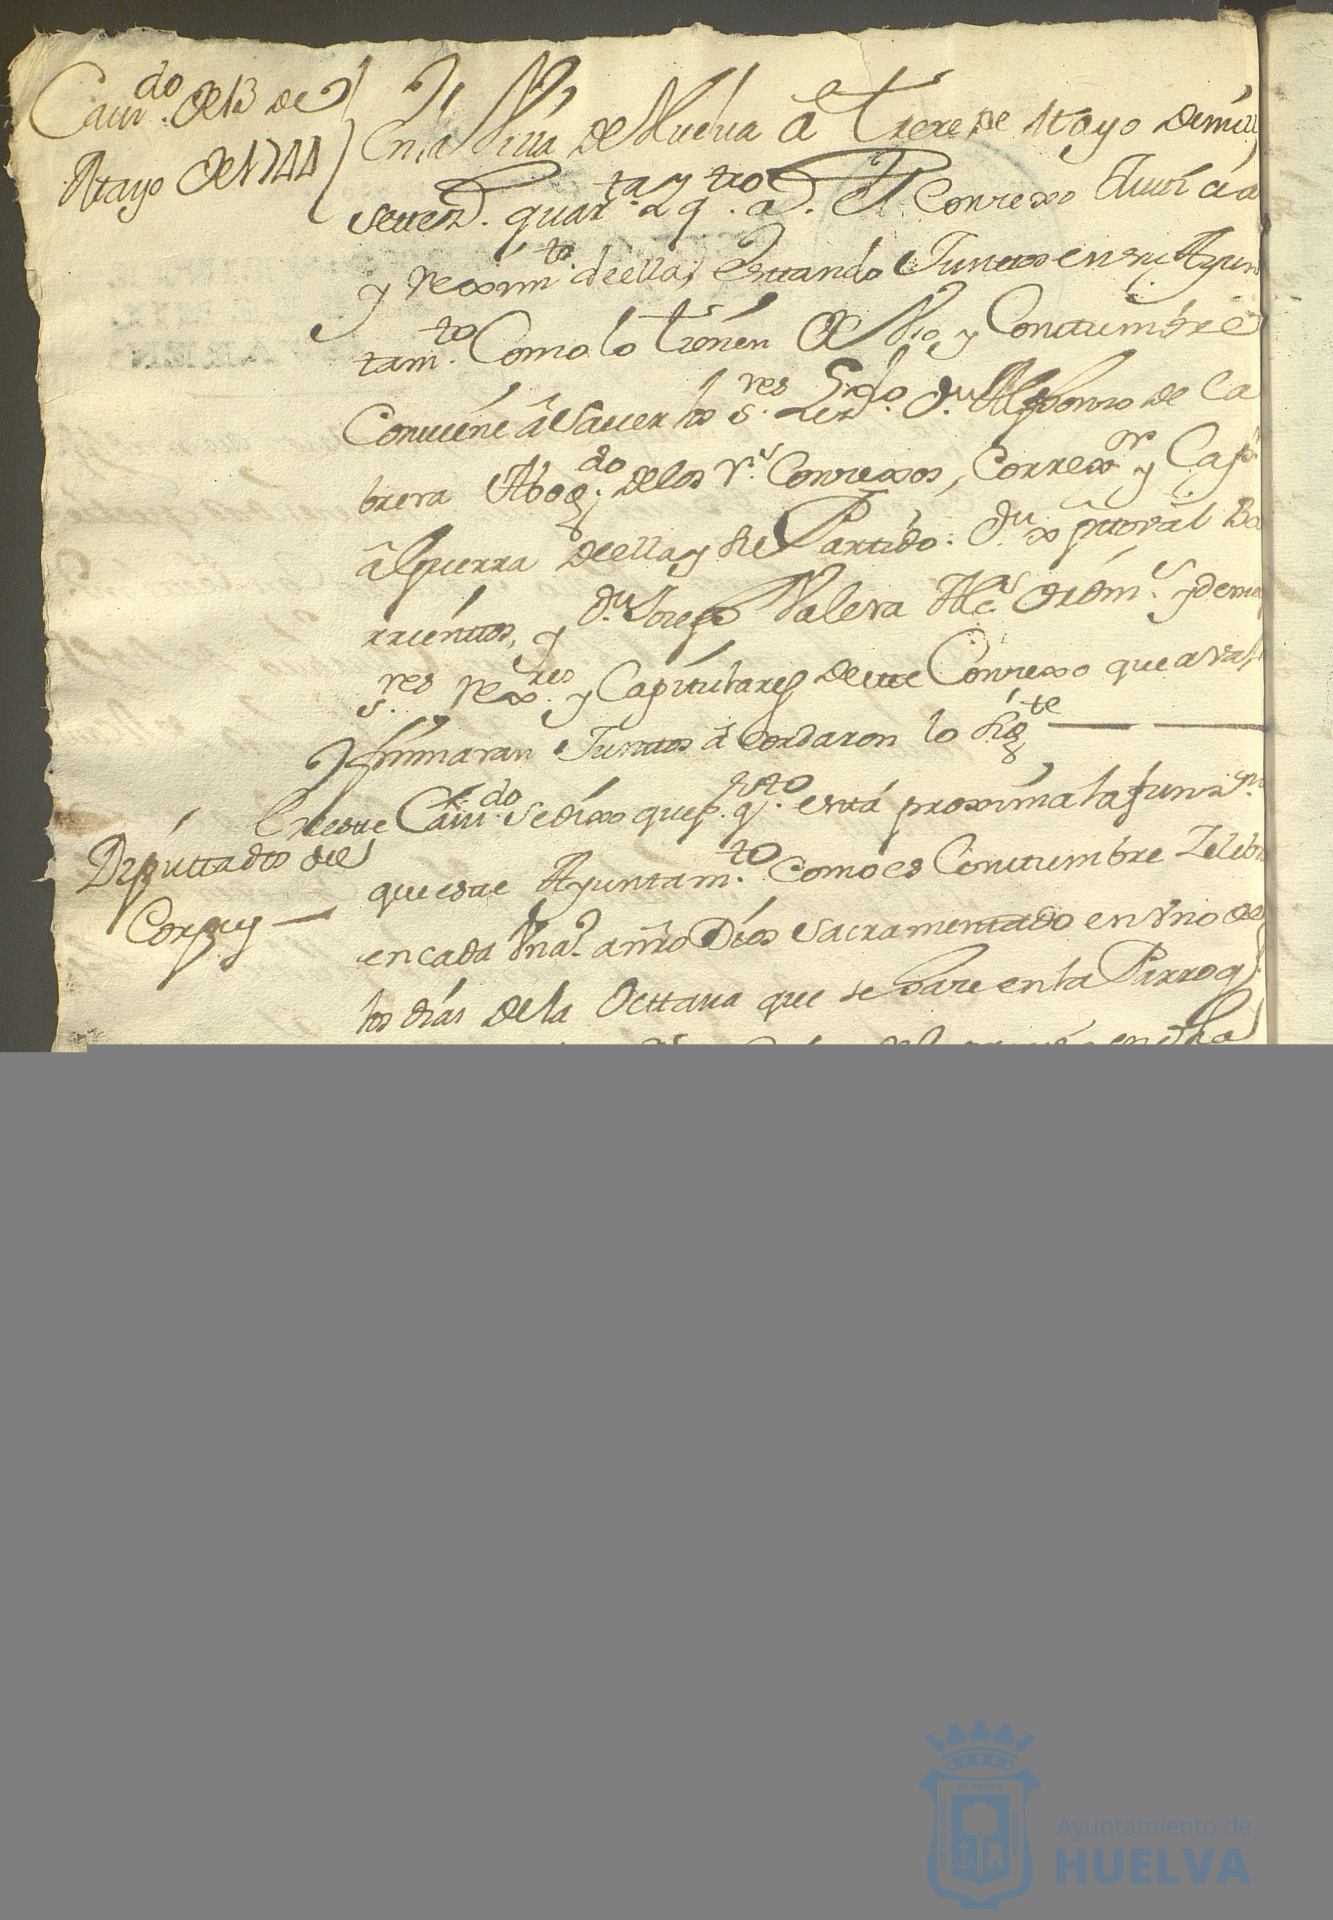 Cavi.do de 13 de
Mayo de 1744
En la Villa de Huelva â treze de Mayo de mill
setez.s quar.ta y q.tro a.s El Conzexo Justicia
y reximi.to de ella, estando Juntos en su Ayun
tam.to Como lo tienen de Vso, y Constumbre
Conviene â saver los s.res Lizdo. Dn. Alphonso de Ca
brera Abog.do de los r.s Conzexos, Correx.or y Cap.n
â guerra de ella y su Partido. Dn. xptoval Ba
rrientos, y Dn. Joseph Valera Alc.s ordin.s y demas
s.res rex.res y Capitulares de este Conzexo que avajo
firmaran Juntos âcordaron lo sig.te
En este Cavi.do se dixo que p.r q.to está proxima la funz.on
Diputtado del
Corpus
que este Ayuntam.to Como es Constumbre Zelebra
en cada Vn a.o a nro Dios sacramentado en vno de
los dias de la Octtava que se haze en la Parroq.l
Ayuntamiento de
HUELVA